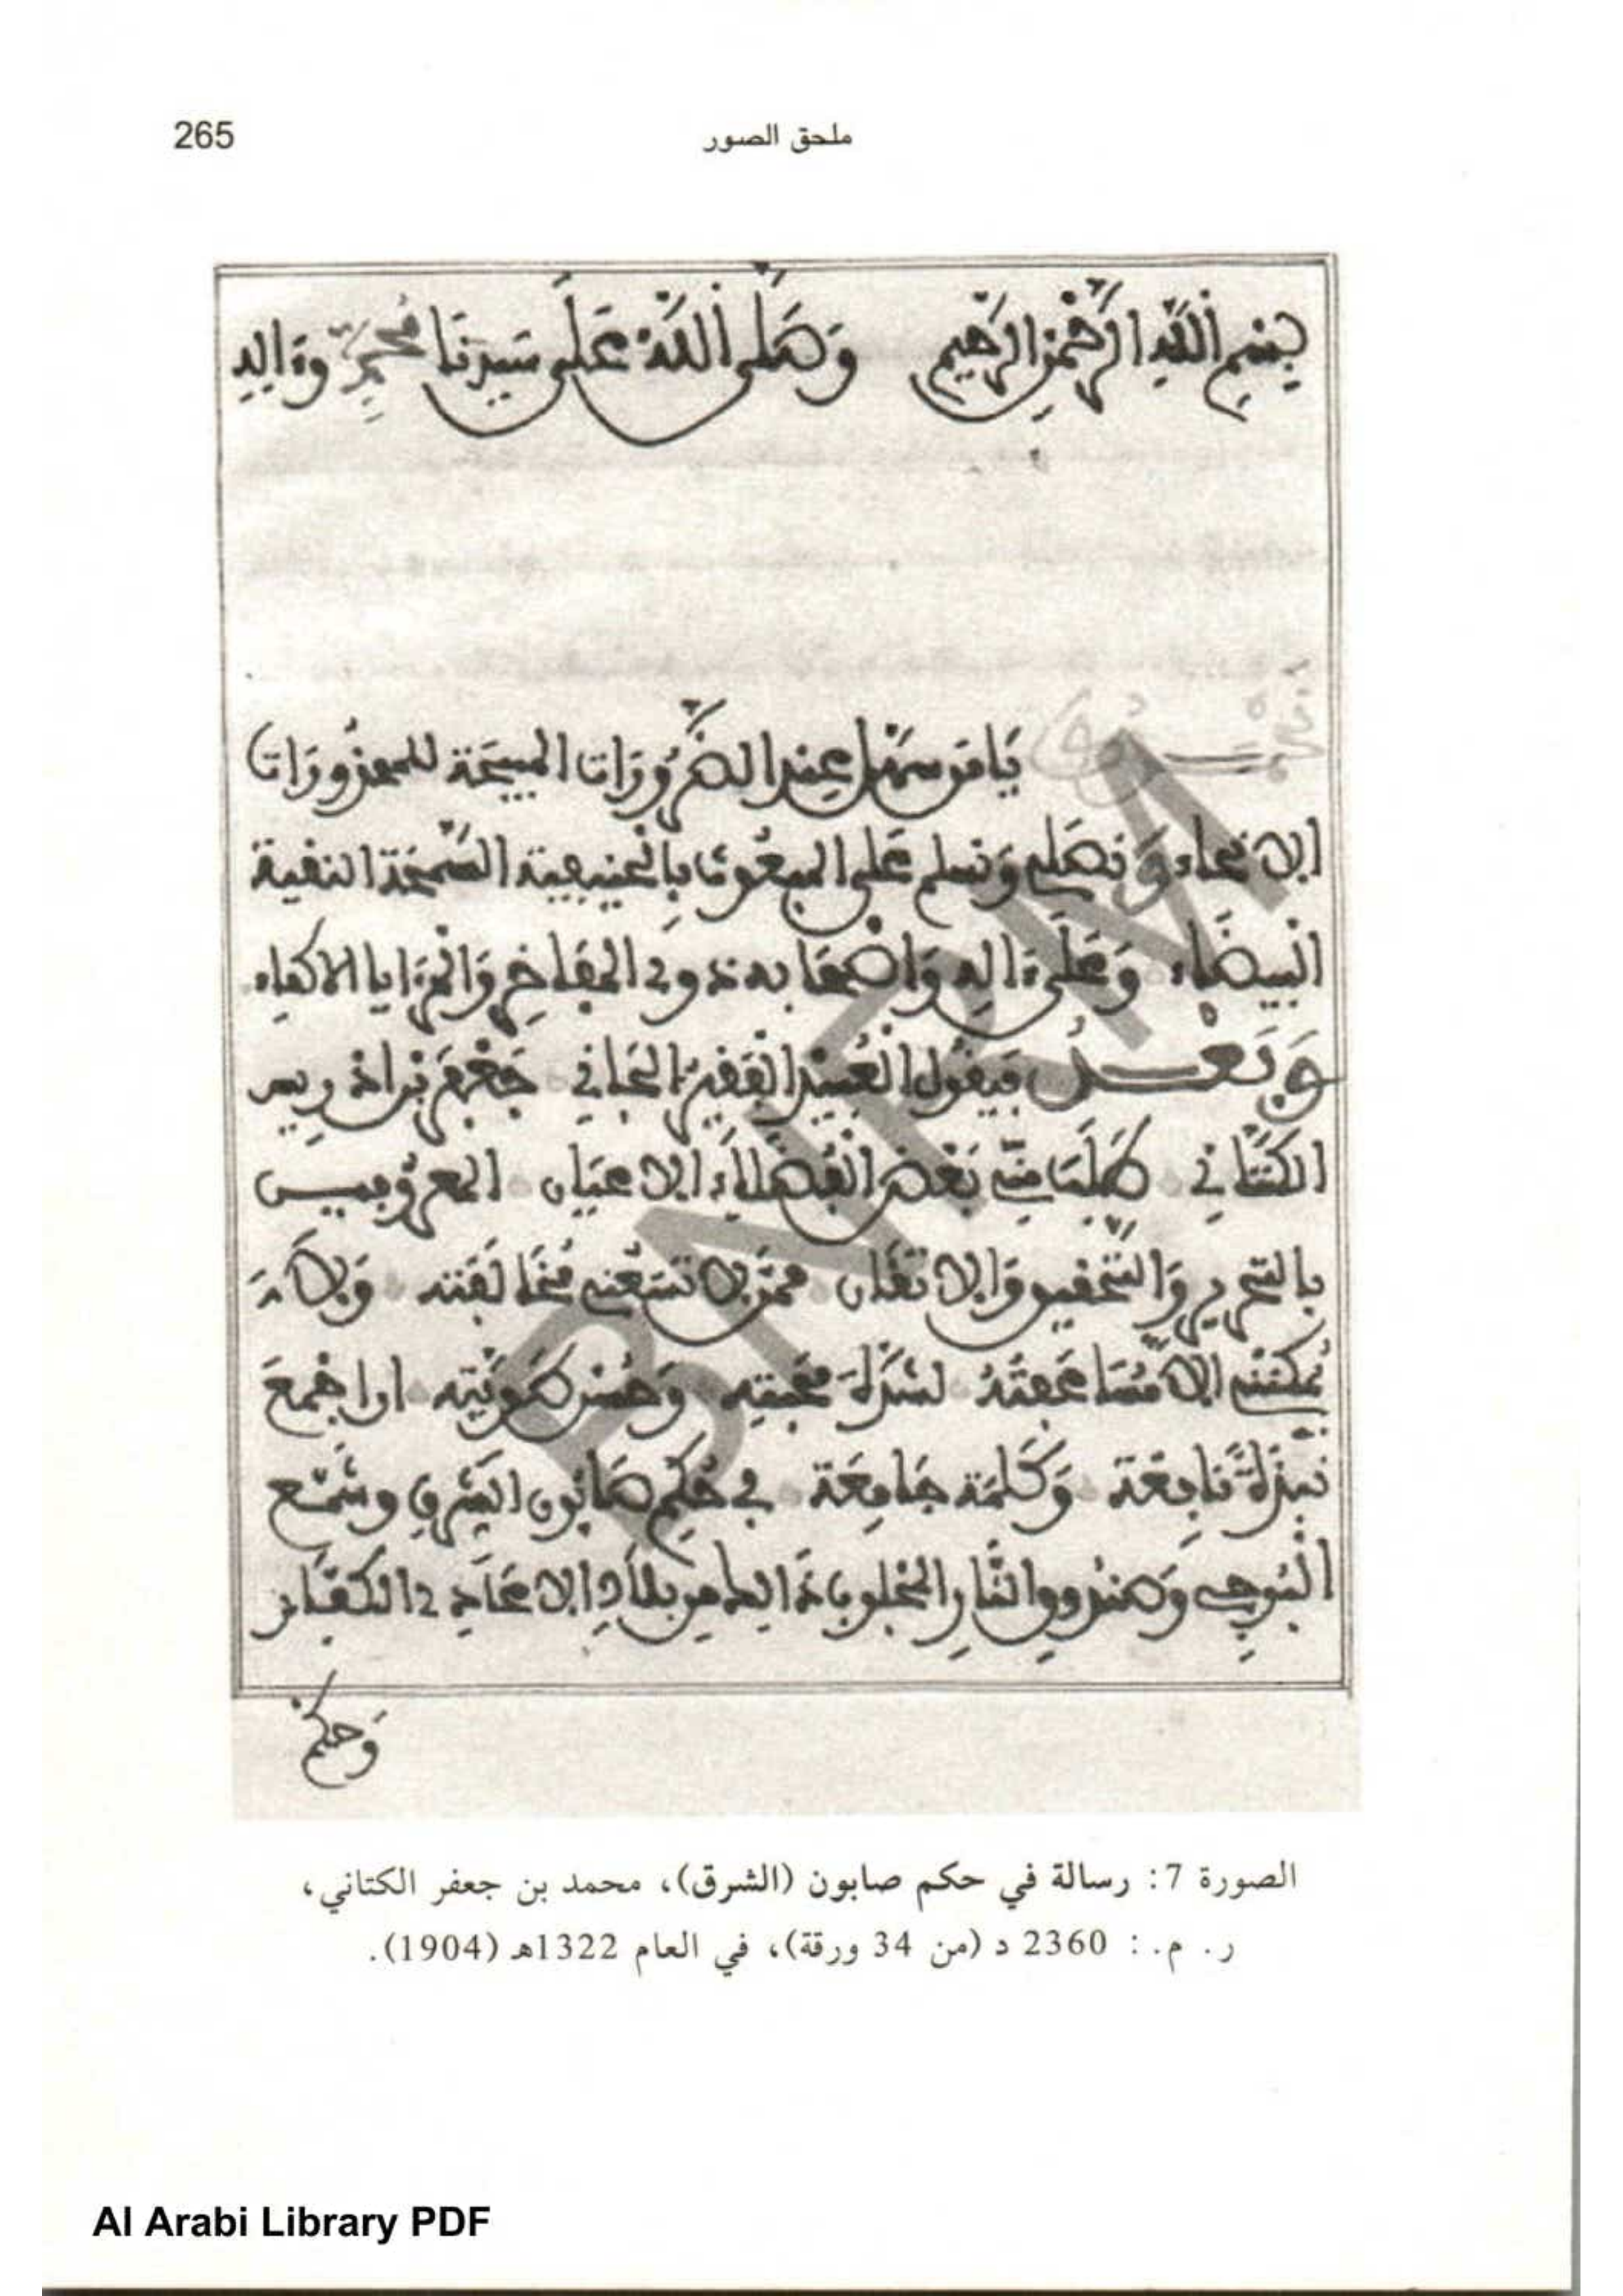 265
ملحق الصور
بِسْمِ اللَّهِ الرَّحْمَنِ الرَّحِيمِ وَصَلَّى اللَّهُ عَلَى سَيِّدِنَا مُحَمَّدٍ وَءَالِهِ
يَا من سهل عند الضَّرُورَات المبيحَة للمحذُورَات
وَنصلي وَنسلم عَلى المبعُوث بِالحنيفية السَّمْحَة النقية
الْبيضَاء وَعَلَى ءَاله وَاصْحَابه ذوى المفَاخِر وَالْمزَايا الاكفاء
وَبَعْد فيقول الْعُبَيْد الْفَقير الجَاني جَعْفَر بْن ادْريس
الكَتَّانِي طَلَبَ مِنِّي بَعْض الْفُضَلَاء الاعيَان المعرُوفيس
بالتحرير وَالتحْقيق وَالاتقَان ممن لا تسَعني مُخَالَفَته وَلَا
يُمكنني الا مُسَاعَفَتهُ لشدة محَبته وَحُسْن طَوِيَّته ان اجْمعَ
نبْذَةً نَافِعَة وَكَلمَة جَامِعَة في حُكِم صَابُون الشرق وشَمْع
الْبُوجِي وَصندُوق النَّارِ المجلوب ذَالك من بلَادِ الاعَادِي الكفَّار
وَحكم
الصورة 7: رسالة في حكم صابون (الشرق)، محمد بن جعفر الكتاني،
ر. م.: 2360 د (من 34 ورقة)، في العام 1322هـ (1904).
BNRM
Al Arabi Library PDF